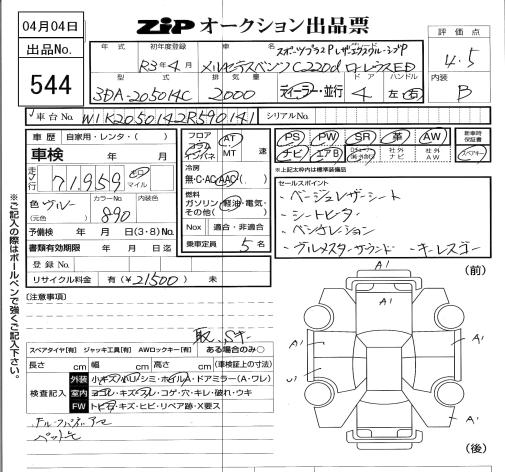 04月04日
ZiP オークション出品票
評価点
出品No.
544
年式
初年度登録
車名
スポーツプラスP レザーエクスクルーシブP
R3年4月
メルセデスベンツ C220d ローレウスED
4.5
型式
排気量
ドア
ハンドル
内装
3DA-205014C
2000
ディーラー・並行
4
左・右
B
車台No.
W1K2050142R590141
シリアルNo.
車歴
自家用・レンタ・( )
フロア
コラム
インパネ
AT
MT
速
PS
PW
SR
革
AW
新車時保証書
ナビ
エアB
社外ナビ
社外AW
スペアキー
車検
年 月
冷房
無・C・AC・AAC
*上記太枠内は標準装備品
走行
71,959
km
マイル
セールスポイント
燃料
ガソリン・軽油・電気・
その他( )
・ベージュレザーシート
・シートヒーター
・ベンチレーション
・ブルメスターサウンド ・キーレスゴー
色
ブルー
(元色)
カラーNo.
890
内装色
予備検 年 月 日(3・8)No.
Nox
適合・非適合
書類有効期限 年 月 日迄
乗車定員
5名
登録No.
リサイクル料金 有(¥21500) 未
(前)
(注意事項)
取、Sキー
スペアタイヤ[有] ジャッキ工具[有] AWロックキー[有] ある場合のみ○
長さ cm 幅 cm 高さ cm (車検証上の寸法)
検査記入
外装
小キズ・小凹・シミ・ホイルA・ドアミラー(A・ワレ)
室内
ヨゴレ・キズ・スレ・コゲ・穴・キレ・破れ・ウキ
FW
トビ石・キズ・ヒビ・リペア跡・X要ス
※ご記入の際はボールペンで強くご記入下さい。
A1
A1
A1
A1
A1
A1
(後)